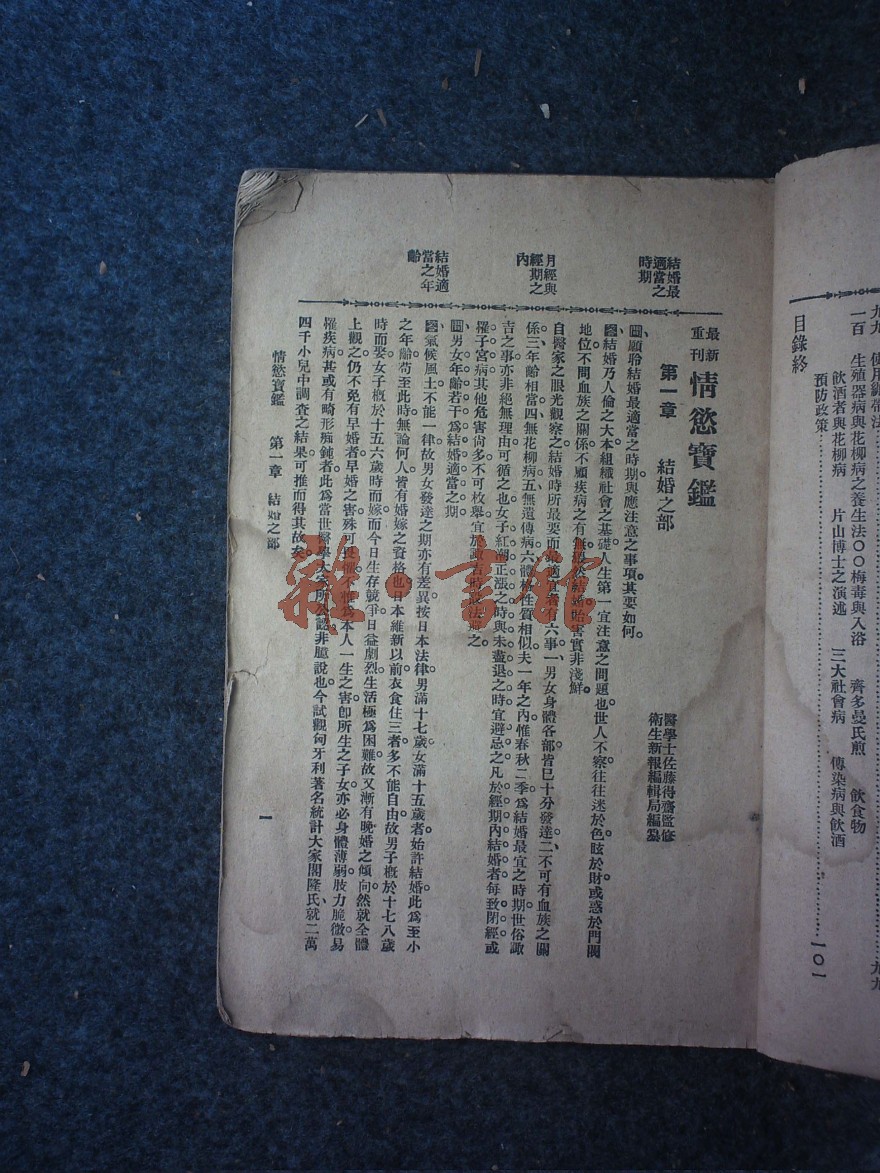 九九
一百　生殖器病與花柳病之養生法〇〇梅毒與入浴　齊多曼氏煎　飲食物
飲酒者與花柳病　片山博士之演述　三大社會病　傳染病與飲酒
預防政策……一〇一
目錄終
結婚最
適當之
時期
月經與
經期之
內
結婚適
當之年
齡
最新
重刊
情慾寶鑑
第一章　結婚之部
醫學士佐藤得齋監修
衛生新報編輯局編纂
問、願聆結婚最適當之時期與應注意之事項。其要如何。
答、結婚乃人倫之大本組織社會之基礎。人生第一宜注意之問題也世人不察往往迷於色眩於財或惑於門閥
地位。不問血族之關係。不顧疾病之有無。
結婚貽害實非淺鮮。
自醫家之眼光觀察之結婚時所最要而最適宜者有六事一男女身體各部皆已十分發達二不可有血族之關
係。三年齡相當四無花柳病五無遺傳病六體格性質相似夫一年之內惟春秋二季爲結婚最宜之時期世俗諏
吉之事亦非絕無理由可循之也女子紅潮正漲之時與未盡退之時宜避忌之凡於經期內結婚者每致閉經或
罹子宮病其他危害尙多不可枚舉宜於諏吉時
之。
問、男女年齡若干爲結婚適當之期。
答、氣候風土不能一律故男女發達之期亦有差異按日本法律男滿十七歲女滿十五歲者始許結婚此爲至小
之年齡苟至此時無論何人皆有婚嫁之資格也日本維新以前衣食住三者多不能自由故男子概於十七八歲
時而娶女子概於十五六歲時而嫁而今日生存競爭日益劇烈生活極爲困難故又漸有晚婚之傾向然就全體
上觀之仍不免有早婚者早婚之害殊可
不
爲本人一生之害卽所生之子女亦必身體薄弱肢力脆微易
罹疾病甚或有畸形痴鈍者此爲當世醫學大家所公認非臆說也今試觀匈牙利著名統計大家閣隆氏就二萬
四千小兒中調查之結果可推而得其故矣。
情慾寶鑑　第一章　結婚之部
一